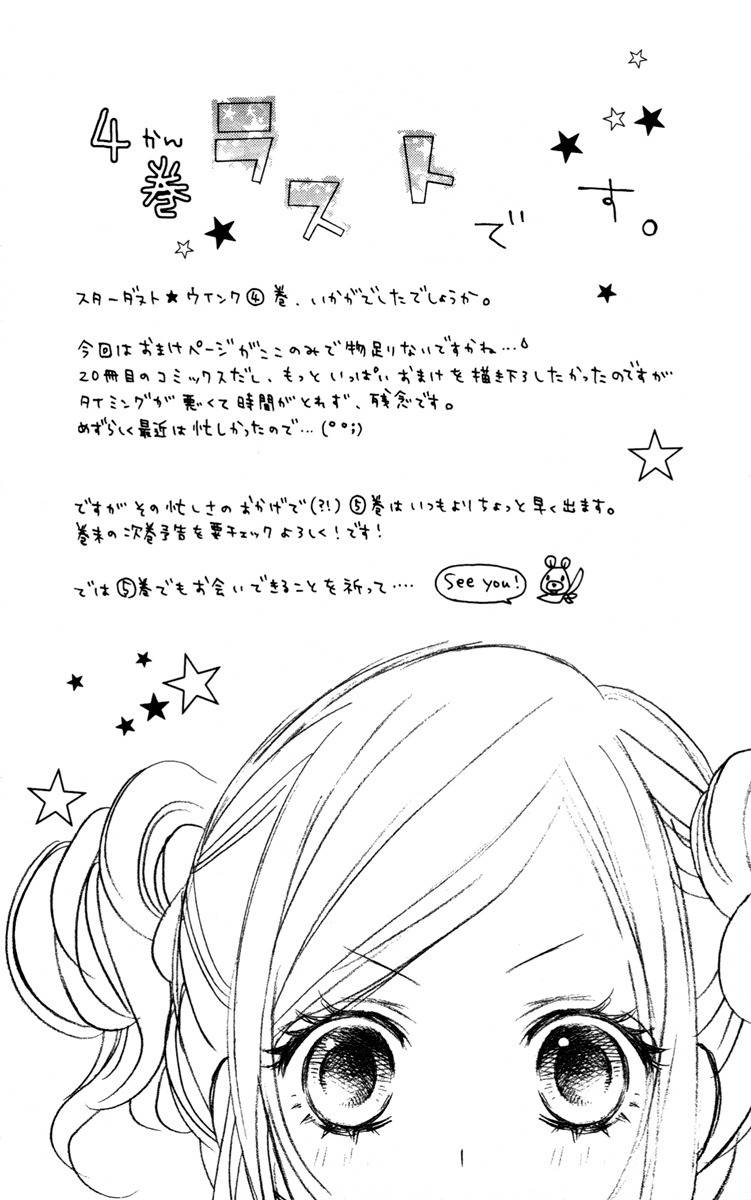 4巻かんラストです。
スターダスト★ウインク④巻、いかがでしたでしょうか。
今回はおまけページがここのみで物足りないですかね…
20冊目のコミックスだし、もっといっぱいおまけを描き下ろしたかったのですが
タイミングが悪くて時間がとれず、残念です。
めずらしく最近は忙しかったので…(°°;)
ですがその忙しさのおかげで(?!)⑤巻はいつもよりちょっと早く出ます。
巻末の次巻予告を要チェックよろしく!です!
では⑤巻でもお会いできることを祈って‥‥
See you!